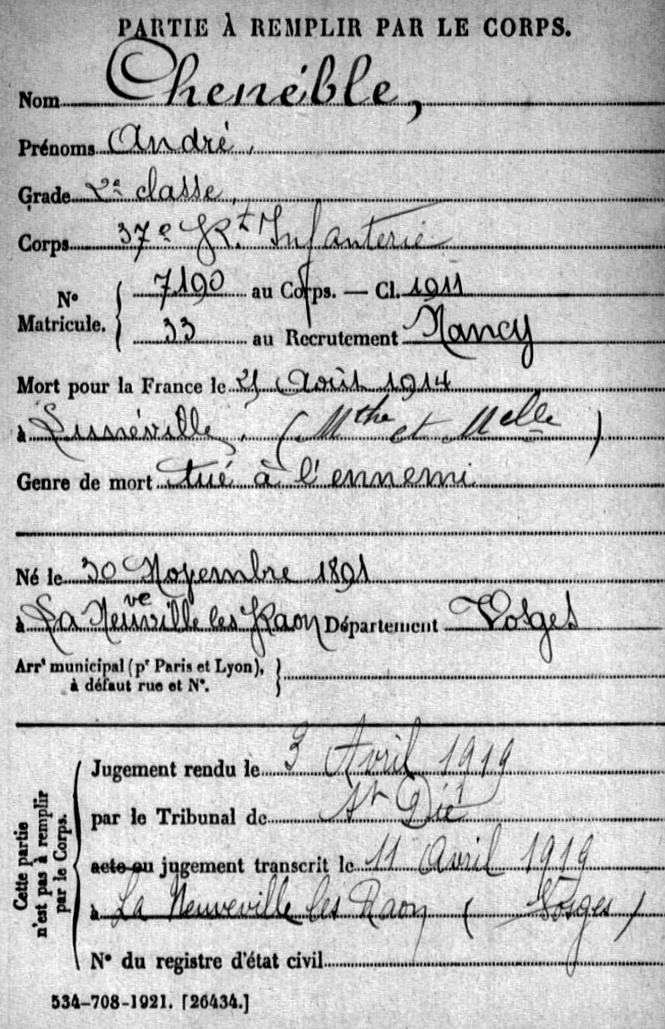 PARTIE À REMPLIR PAR LE CORPS.
Nom Chenéble,
Prénoms André,
Grade 2e classe,
Corps 37e Rt Infanterie
N° Matricule. { 7190 au Corps. — Cl. 1911
33 au Recrutement Nancy
Mort pour la France le Août 1914
à Lunéville, (Mthe et Melle)
Genre de mort tué à l'ennemi
Né le 30 Novembre 1891
à La Neuveville les Raon Département Vosges
Arrt municipal (pr Paris et Lyon), }
à défaut rue et N°.
Cette partie n'est pas à remplir par le Corps.
Jugement rendu le 3 Avril 1919
par le Tribunal de St Dié
acte ou jugement transcrit le 11 Avril 1919
à La Neuveville les Raon (Vosges)
N° du registre d'état civil
534-708-1921. [26434.]